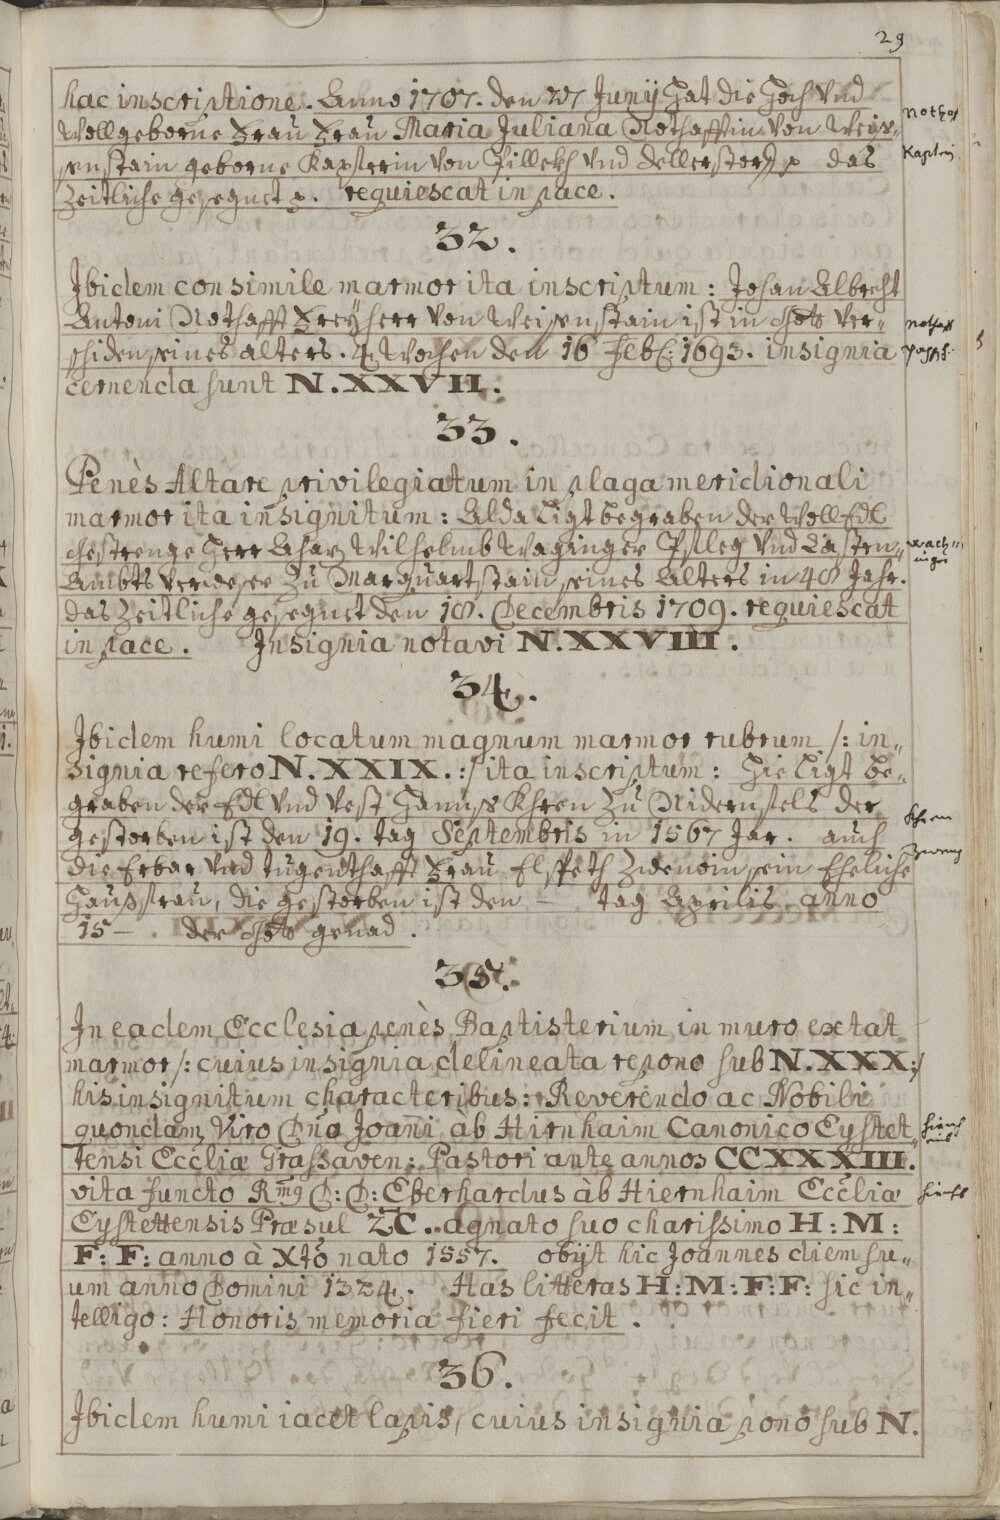 29
hac inscriptione. Anno 1707. den 27 Junÿ Hat die Hoch Vnd
Wollgeborne Frau Frau Maria Juliana Nothafftin Von Weis-
senstain geborne Kapflerin Von Pillekh Vnd Dellerstorf p das
Zeitliche gesegnet p. requiescat in pace.
32.
Ibidem consimile marmor ita inscriptum: Johan Albrecht
Antoni Nothafft Freÿherr Von Weisenstain ist in Gott Ver-
schiden, seines alters. 4 Wochen den 16 Feb: 1693. insignia
cernenda sunt N. XXVII.
33.
Penès Altare privilegiatum in plaga meridionali
marmor ita insignitum: Alda Ligt begraben der WollEdl
Gestrenge Herr Wilhelmb Waginger Pfleg Vnd Casten-
Ambts Verweser Zu Marquartstain seines Alters in 48 Jahr.
das Zeitliche gesegnet den 18. Decembris 1709. requiescat
in pace. Insignia notavi N. XXVIII.
34.
Ibidem humi locatum magnum marmor rubrum /: in-
signia refero N. XXIX. :/ ita inscriptum: Hie Ligt be-
graben der Edl Vnd Vest Hannss Khren Zu Nidernfels der
gestorben ist den 19. tag Septembris in 1567 Jar. auch
die Erbar Vnd tugendthafft Frau Elspeth sein Eheliche
Haussfrau, die gestorben ist den – tag Aprilis anno
15 – der Gott genad.
35.
In eadem Ecclesia penès Baptisterium in muro extat
marmor /: cuius insignia delineata repono sub N. XXX :/
his insignitum characteribus: Reverendo ac Nobili
quondam Viro Dno Joani ab Hirnhaim Canonico Eystet-
tensi Eccliæ Grassaven: Pastori ante annos CCXXXIII.
vita functo Rmg D: D: Eberhardus àb Hiernhaim Eccliæ
Eystettensis Præsul ZC.. agnato suo charissimo H: M:
F: F: anno à Xto nato 1557. obÿt hic Joannes diem su-
um anno Domini 1324. Has litteras H: M: F: F: sic in-
telligo: Honoris memoria fieri fecit.
36.
Ibidem humi iacet lapis, cuius insignia pono sub N.